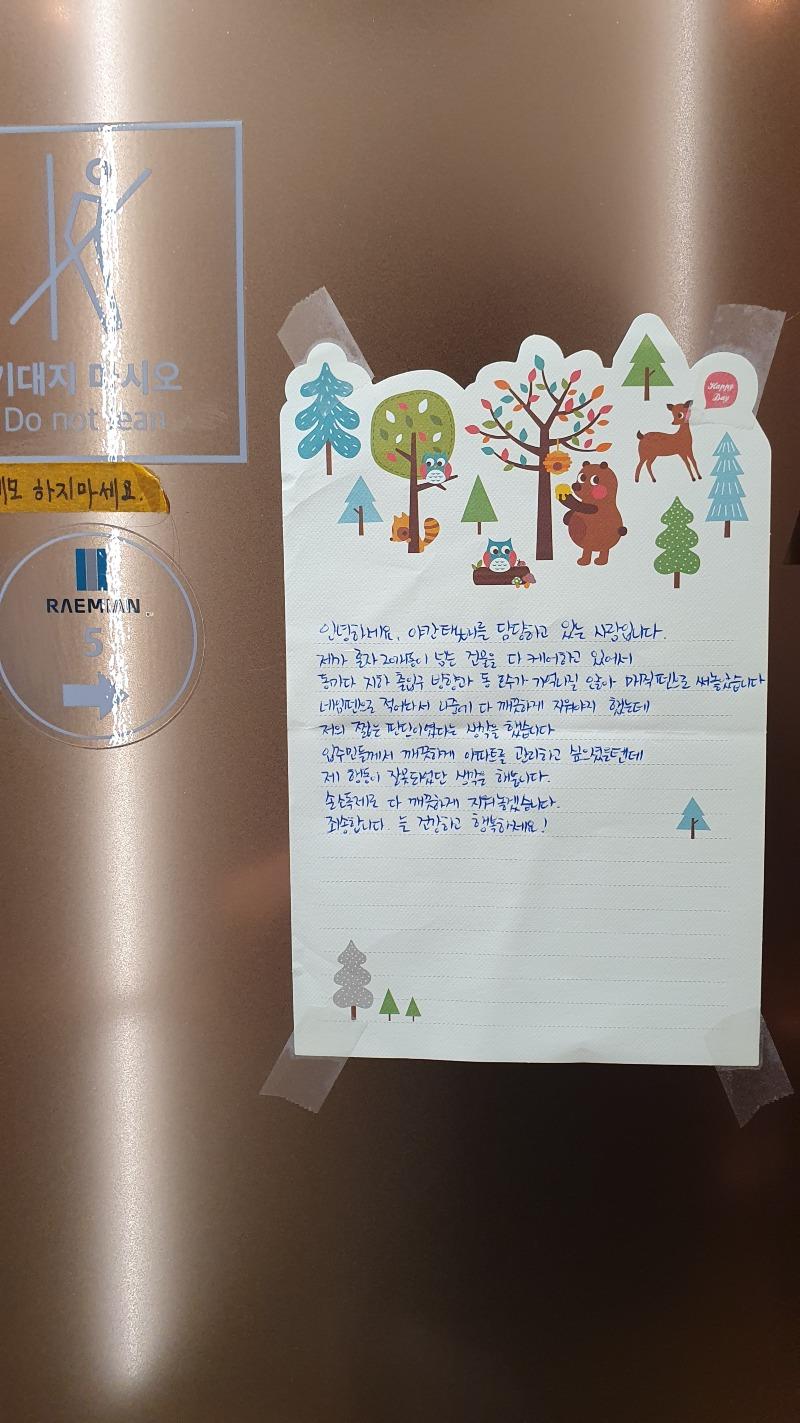 기대지 마시오
Do not lean
하지마세요.
RAEMIAN
5
Happy
Day
안녕하세요, 야간택배를 담당하고 있는 사람입니다.
제가 혼자 20개동이 넘는 건물을 다 케어하고 있어서
동마다 지하 출입구 방향과 동 호수가 기억나질 않아 매직펜으로 써놓았습니다
네임펜으로 적어놔서 나중에 다 깨끗하게 지워야지 했는데
저의 짧은 판단이였다는 생각을 했습니다
입주민들께서 깨끗하게 아파트를 관리하고 싶으셨을텐데
제 행동이 잘못되었단 생각을 해봅니다.
손소독제로 다 깨끗하게 지워놓겠습니다.
죄송합니다. 늘 건강하고 행복하세요!